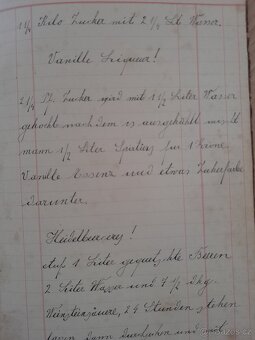 1 1/2 Kilo Zucker mit 2 1/2 Lt Wasser
Vanille Liqueur!
2 1/4 Zucker wird mit 1 1/2 Liter Wasser
gekocht nach dem es ausgekühlt mischt
mann 1/2 Liter Spiritus für 1 Krone
Vanille Essenz und etwas Zuckerfarbe
darunter.
Heidelbeeres!
Auf 1 Liter gequetschte Beeren
2 Liter Wasser und 4 1/2 dkg
Weinsteinsäure, 24 Stunden stehen
dann durchsehen und mit